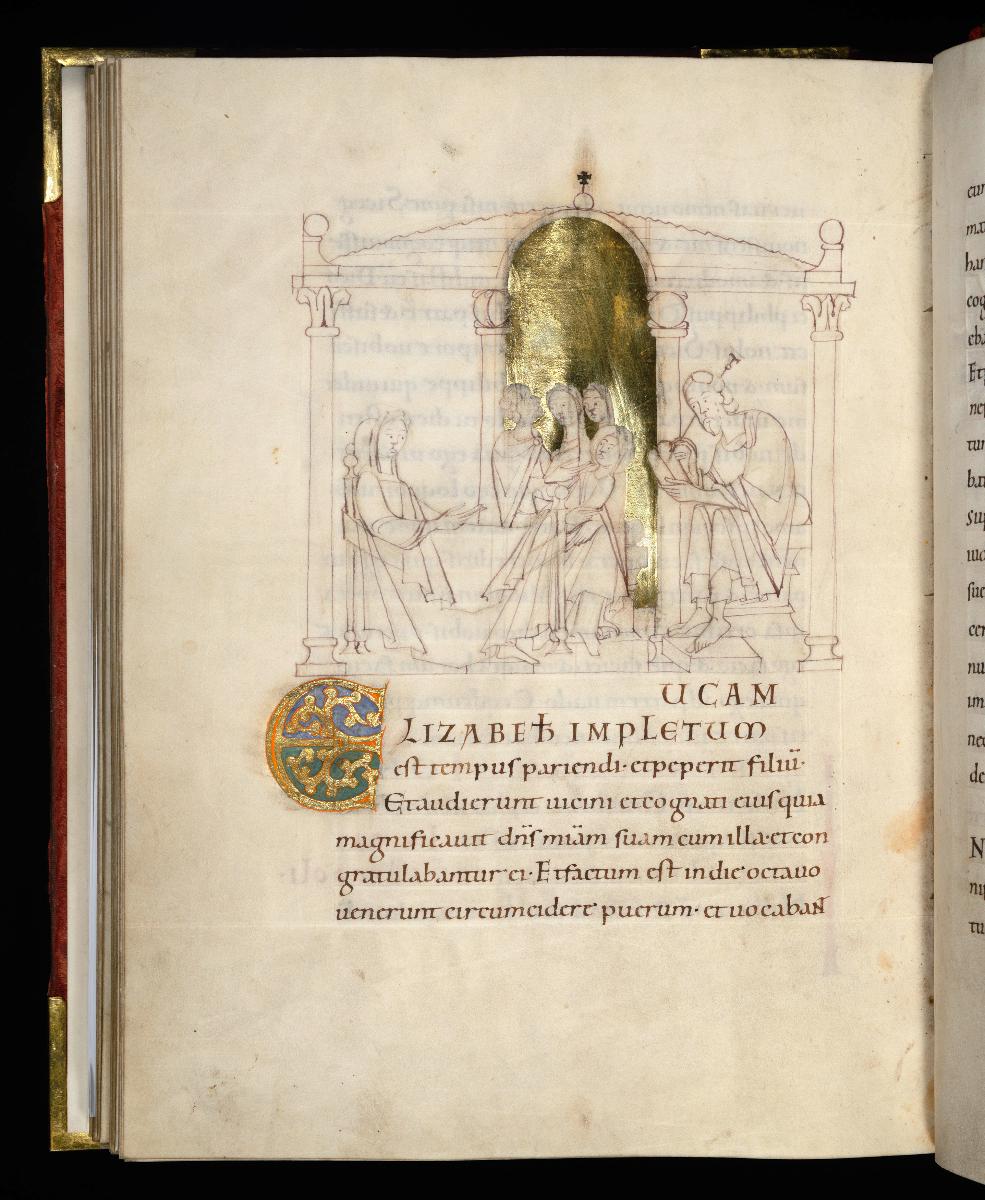 UCAM
ELIZABETH IMPLETUM
est tempus pariendi · et peperit filiū ·
Et audierunt uicini et cognati eius quia
magnificauit dn̄s miām suam cum illa · et con
gratulabantur ei · Et factum est in die octauo
uenerunt circumcidere puerum · et uocabant